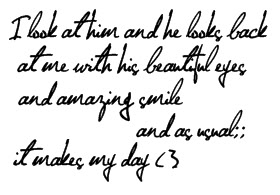 I look at him and he looks back
at me with his beautiful eyes
and amazing smile
and as usual;;
it makes my day <3